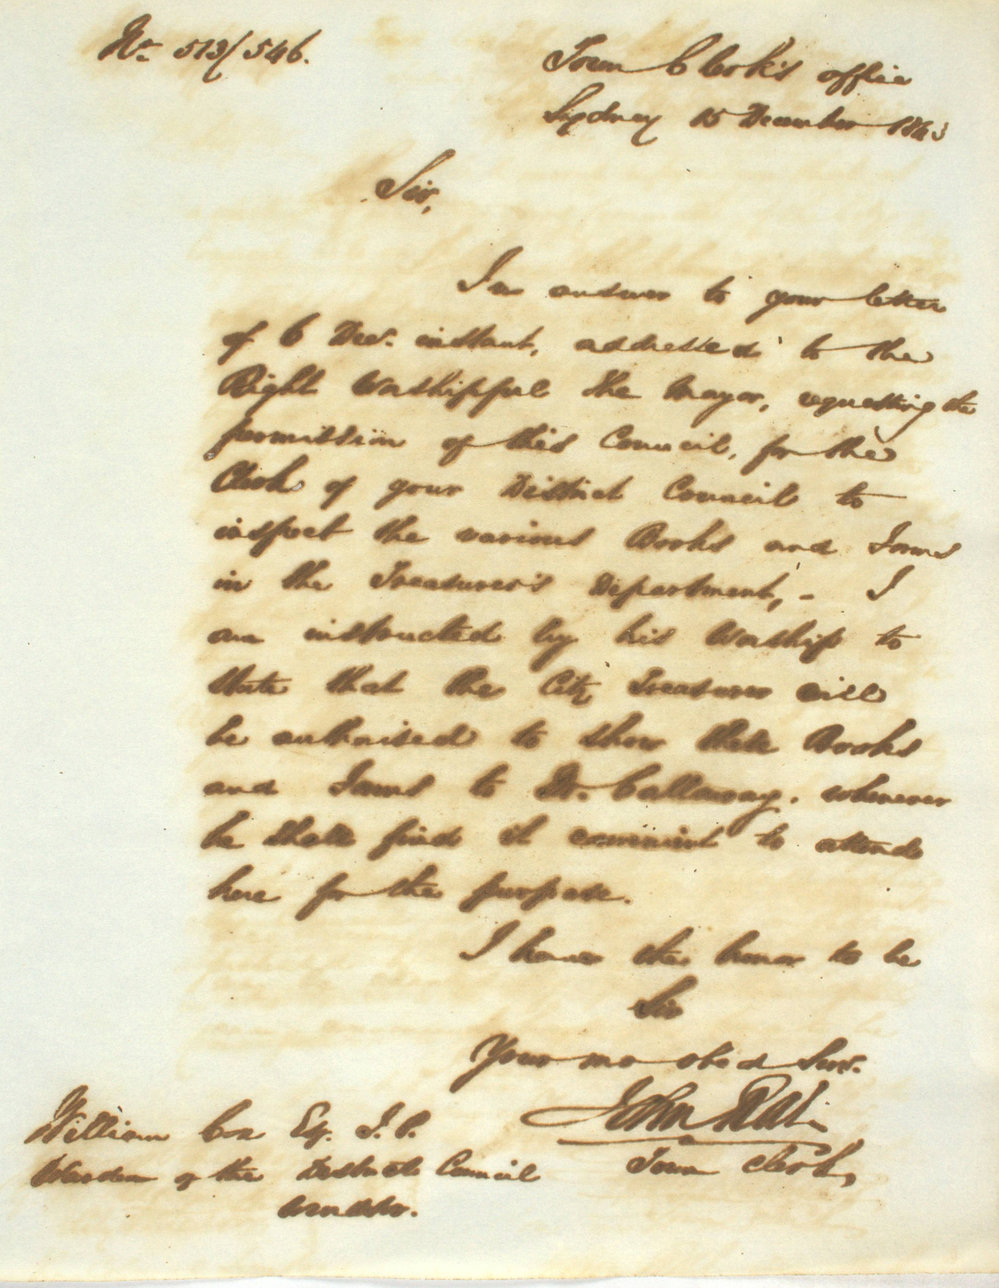 No. 513/546.
Town Clerk's office
Sydney 15 December 1843
Sir,
In answer to your letter
of 6 Decr. instant, addressed to the
Right Worshipful the Mayor, requesting the
permission of this Council, for the
Clerk of your District Council to
inspect the various Books and Forms
in the Treasurer's Department, - I
am instructed by his Worship to
state that the City Treasurer will
be authorised to show these Books
and Forms to Mr. Callaway, whenever
he shall find it convenient to attend
here for the purpose.
I have the honor to be
Sir
Your mo obed Serv.
John Rae
Town Clerk,
William Cox Esq. J.P.
Warden of the District Council
Windsor.